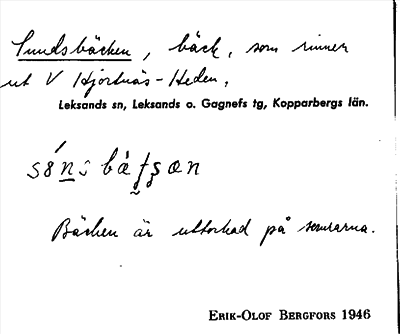 Sundsbäcken, bäck, som rinner
ut V Hjortnäs-Heden,
Leksands sn, Leksands o. Gagnefs tg, Kopparbergs län.
Bäcken är uttorkad på somrarna.
ERIK-OLOF BERGFORS 1946